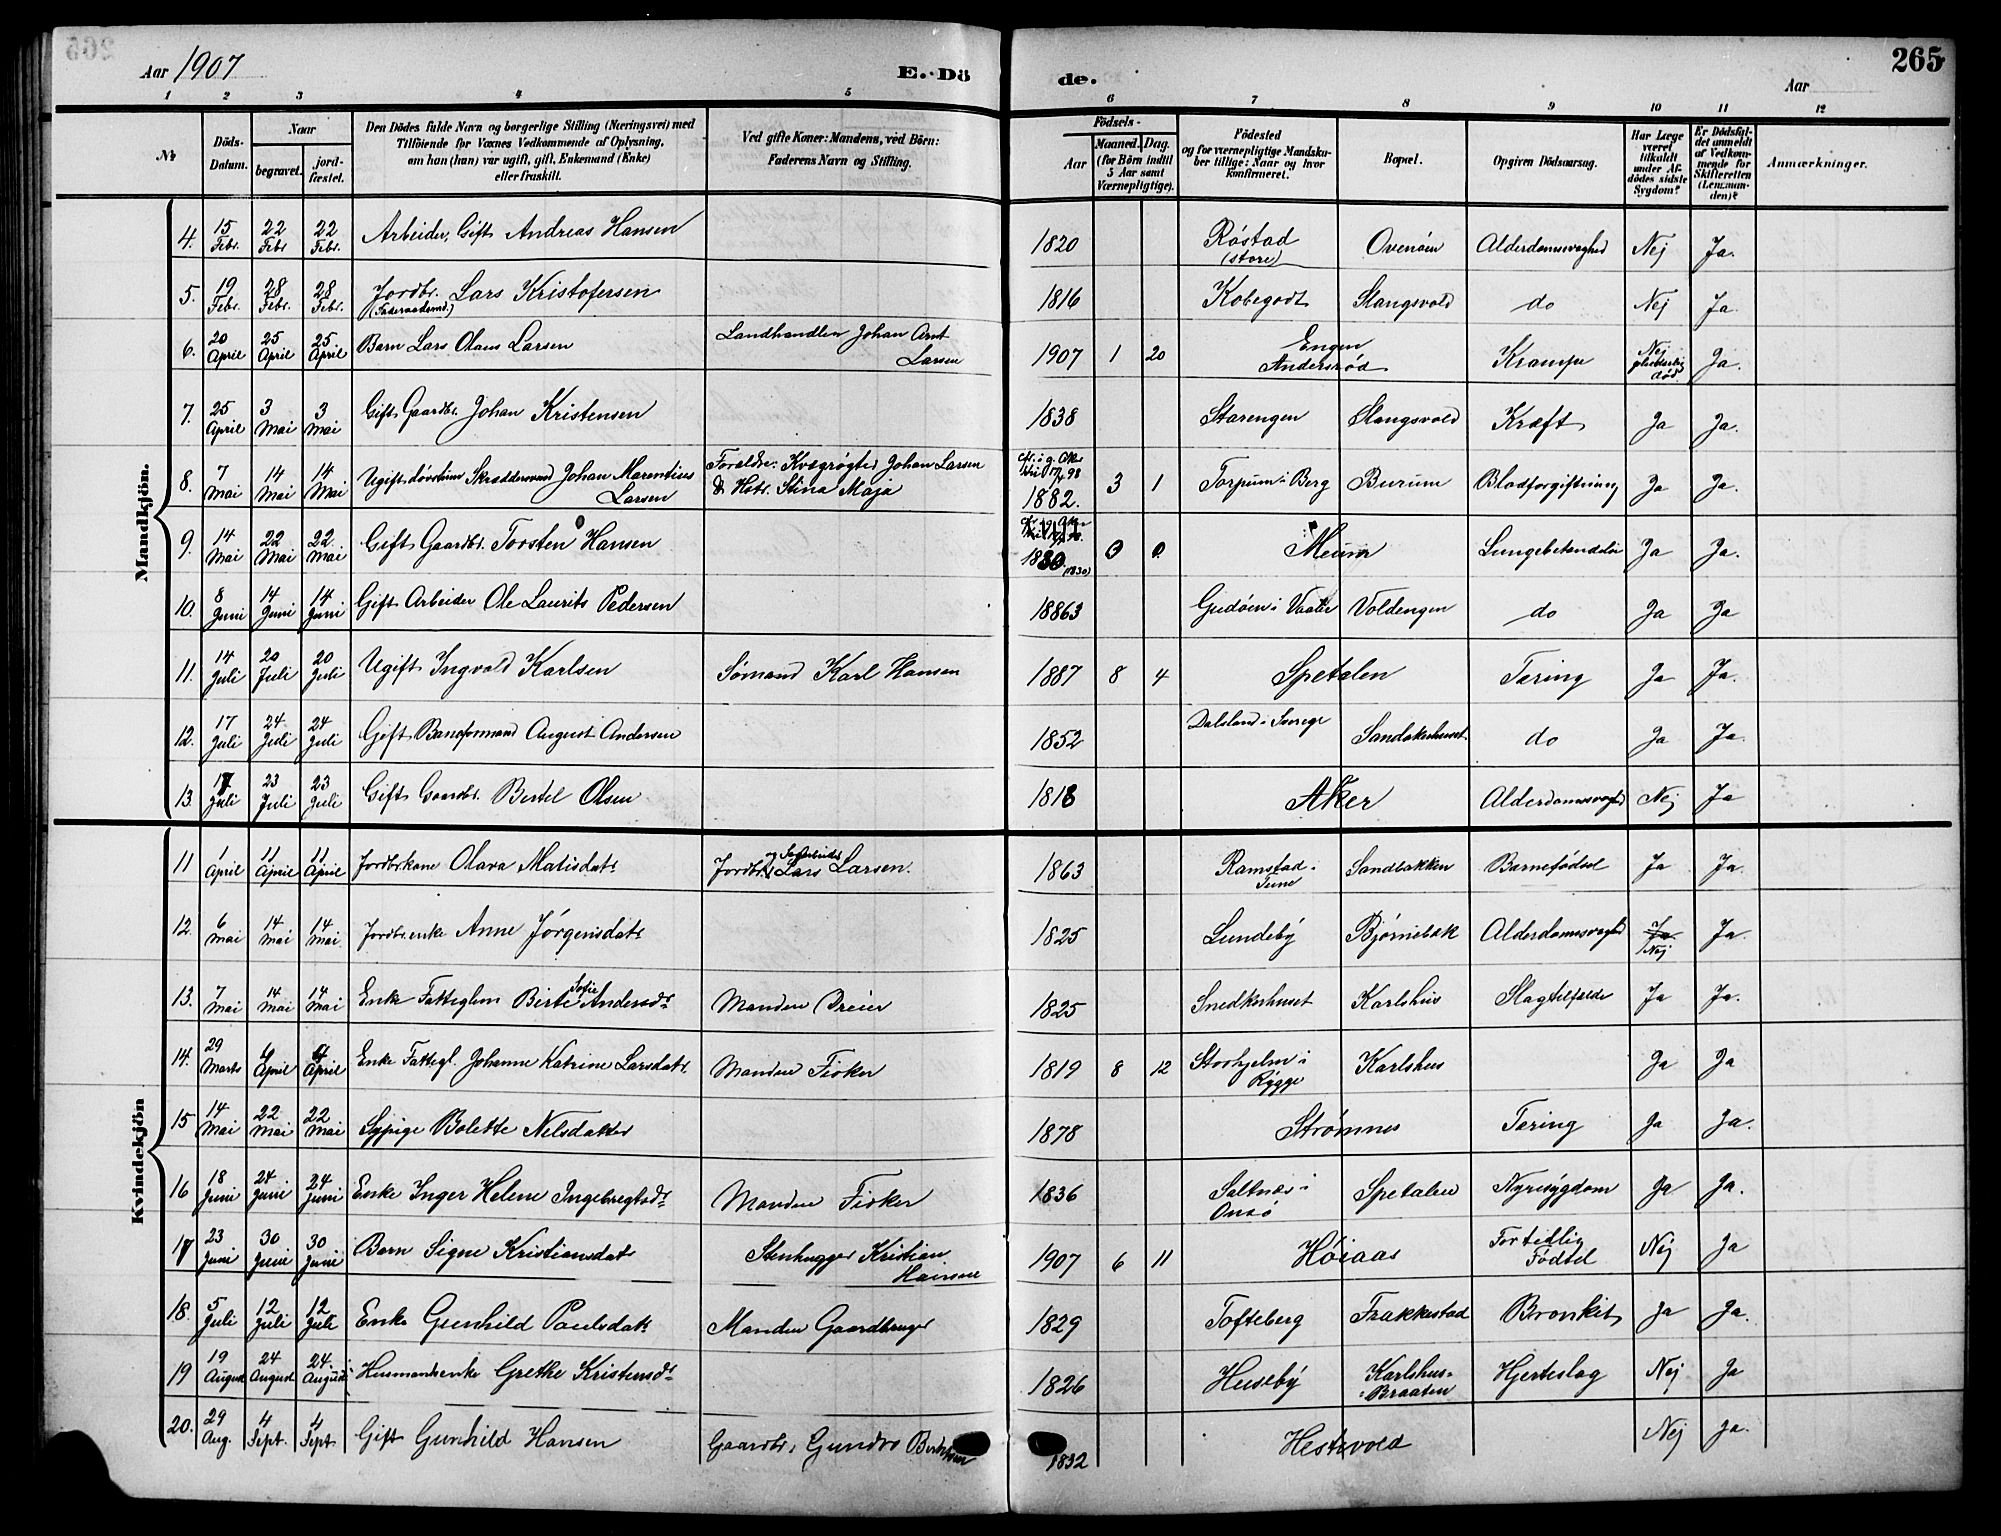 Aar 1907
E. Dö
de.
Aar
265
1 2 3 4 5 6 7 8 9 10 11 12
No
Döds-Datum.
Naar
begravet.
jord-fæstet.
Den Dödes fulde Navn og borgerlige Stilling (Næringsvei) med
Tilföiende for Voxnes Vedkommende af Oplysning,
om han (hun) var ugift, gift, Enkemand (Enke)
eller fraskilt.
Ved gifte Koner: Mandens, ved Börn:
Faderens Navn og Stilling.
Födsels-
Aar
Maaned. Dag.
(for Börn indtil
5 Aar samt
Værnepligtige).
Födested
og for værnepligtige Mandska-
ber tillige: Naar og hvor
konfirmeret.
Bopæl.
Opgiven Dödsaarsag.
Har Læge
været
tilkaldt
under Af-
dödes sidste
Sygdom?
Er Dödsfal-
det anmeldt
af Vedkom-
mende for
Skifteretten
(Lensman-
den)?
Anmærkninger.
Mandkjön.
4. 15 Febr. 22 Febr 22 Febr. Arbeider, Gift Andreas Hansen 1820 Röstad (store) Ovenöen Alderdomsvaghed Nej Ja.
5. 19 Febr. 28 Febr. 28 Febr. Jordbr. Lars Kristofersen (Føderaadsmd.) 1816 Kobegodt Slangsvold do Nej Ja.
6. 20 April 25 April 25 April Barn Lars Olaus Larsen Landhandler Johan Arnt Larsen 1907 1 20 Engen Andersrød Krampe Nej død Ja.
7. 25 April 3 Mai 3 Mai Gift Gaardbr. Johan Kristensen 1838 Starengen Slangsvold Kræft Ja Ja.
8. 7 Mai 14 Mai 14 Mai Ugift døvstum Skræddersvend Johan Marentius Larsen Forældre: Kvægrøgter Johan Larsen & Hstr. Stina Maja 1882. 3 1 Torpum i Berg Burum Blodforgiftning Ja Ja.
9. 14 Mai 22 Mai 22 Mai Gift Gaardbr. Torsten Hansen 1830 (1830) 0 0 Meum Lungebetændelse Ja Ja.
10. 8 Juni 14 Juni 14 Juni Gift Arbeider Ole Laurits Pedersen 18863 Gudøen i Vaaler Voldengen do Ja Ja
11. 14 Juli 20 Juli 20 Juli Ugift Ingvald Karlsen Sømand Karl Hansen 1887 8 4 Spetalen Tæring Ja Ja.
12. 17 Juli 24 Juli 24 Juli Gift Baneformand August Andersen 1852 Dalsland i Sverige Sandakerhuset do Ja Ja.
13. 17 Juli 23 Juli 23 Juli Gift Gaardbr. Bertel Olsen 1818 Aker Alderdomsvaghed Nej Ja
Kvindekjön
11 1 April 11 April 11 April Jordbr.kone Olava Matisdatr Jordbr. og Sagarbeider Lars Larsen. 1863 Ramstad i Tune Sandbakken Barnefødsel Ja Ja.
12. 6 Mai 14 Mai 14 Mai. Jordbr.enke Anne Jörgensdatr 1825 Lundeby Bjørnebæk Alderdomsvaghed Ja Nej Ja.
13. 7 Mai 14 Mai 14 Mai Enke Fattiglem Birte Sofie Andersdr Manden Dreier 1825 Snedkerhuset Karlshus Slagtilfælde Ja Ja.
14. 29 Marts 4 April 4 April Enke Fattigl. Johanne Katrine Larsdatr. Manden Fisker 1819 8 12 Storhjelm i Rygge Karlshus Ja Ja
15 14 Mai 22 Mai 22 Mai Sypige Bolette Nelsdatter 1878 Strømnes Tæring Ja Ja.
16 18 Juni 24 Juni 24 Juni Enke Inger Helene Ingebregtsdr Manden Fisker 1836 Saltnæs i Onsø Spetalen Nyresygdom Ja Ja.
17 23 Juni 30 Juni 30 Juni Barn Signe Kristiansdatr Stenhugger Kristian Hansen 1907 6 11 Høiaas For tidlig Fødsel Nej Ja
18. 5 Juli 12 Juli 12 Juli Enke Gunhild Paulsdatr Manden Gaardbruger 1829 Tofteberg Frakkestad Bronkit Ja Ja.
19 19 August 24 August 24 August Husmandsenke Grethe Kristensdr 1826 Huseby Karlshus-Braaten Hjerteslag Nej Ja
20. 29 Aug. 4 Sept. 4 Sept. Gift Gunhild Hansen Gaardbr. Gundro 1832 Hestevold Nej Ja.